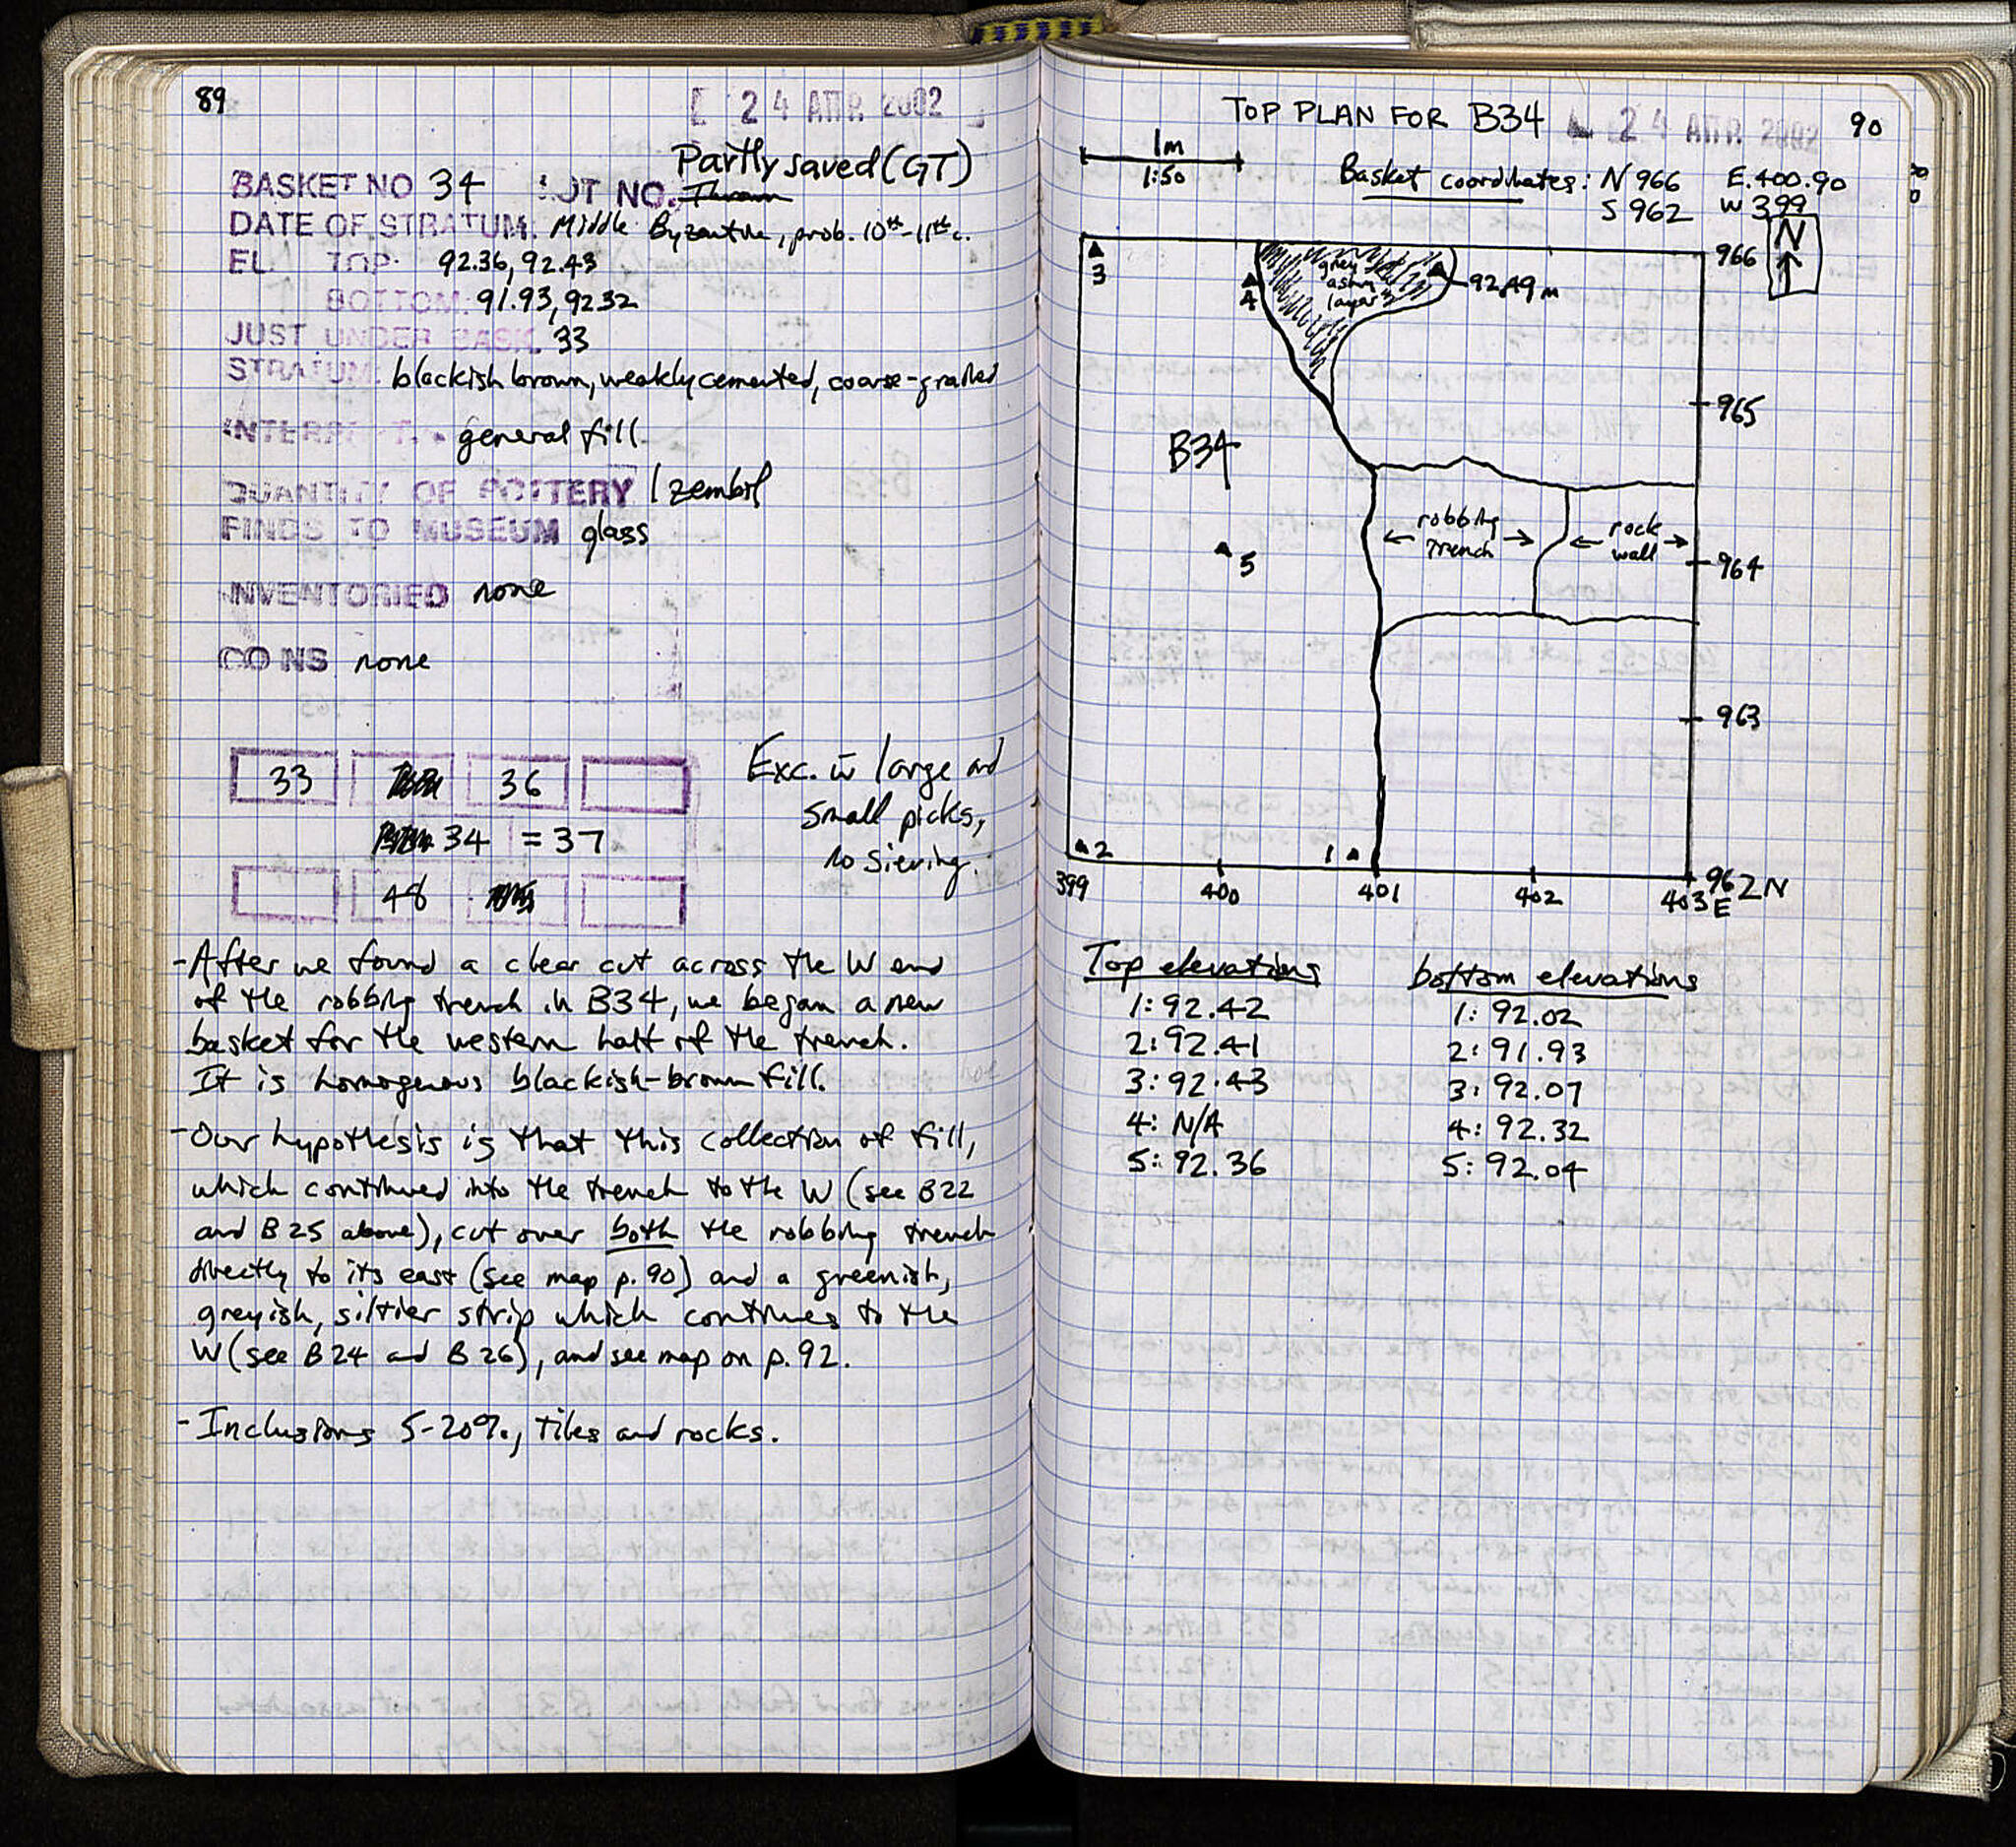 89
24 ΑΠΡ. 2002
Partly saved (GT)
BASKET NO 34 LOT NO. Thrown
DATE OF STRATUM: Middle Byzantine, prob. 10th-11th c.
EL. TOP: 92.36, 92.43
BOTTOM: 91.93, 92.32
JUST UNDER BASK. 33
STRATUM: blackish brown, weakly cemented, coarse-grained
INTERPRET. general fill
QUANTITY OF POTTERY 1 zembil
FINDS TO MUSEUM glass
INVENTORIED none
CONS none
33 36
34 = 37
48
Exc. w̄ large and
small picks,
no sieving.
- After we found a clear cut across the W end
of the robbing trench in B34, we began a new
basket for the western half of the trench.
It is homogenous blackish-brown fill.
- Our hypothesis is that this collection of fill,
which continued into the trench to the W (see B22
and B25 above), cut over both the robbing trench
directly to its east (see map p. 90) and a greenish,
greyish, siltier strip which continues to the
W (see B24 and B26), and see map on p. 92.
- Inclusions 5-20%, tiles and rocks.
TOP PLAN FOR B34 24 ΑΠΡ. 2002 90
1m
1:50
Basket coordinates: N 966 E. 400.90
S 962 W 399
N
966
3
4
grey
ashy
layer
92.49 m
965
B34
robbing
trench
rock
wall
5
964
963
2
1
399 400 401 402 403 E
962 N
Top elevations
1: 92.42
2: 92.41
3: 92.43
4: N/A
5: 92.36
bottom elevations
1: 92.02
2: 91.93
3: 92.07
4: 92.32
5: 92.04